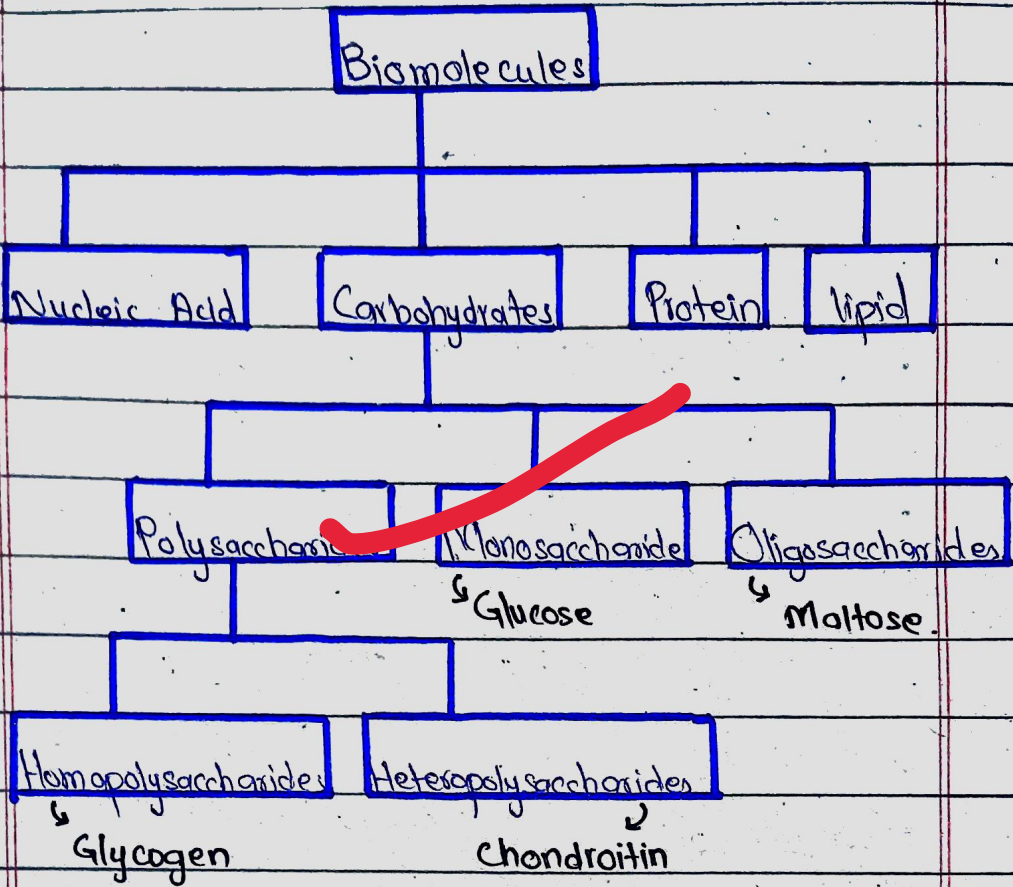 Biomolecules
Nucleic Acid Carbohydrates Protein lipid
Monosaccharide Oligosaccharides
Glucose Maltose.
Homopolysaccharides Heteropolysaccharides
Glycogen Chondroitin